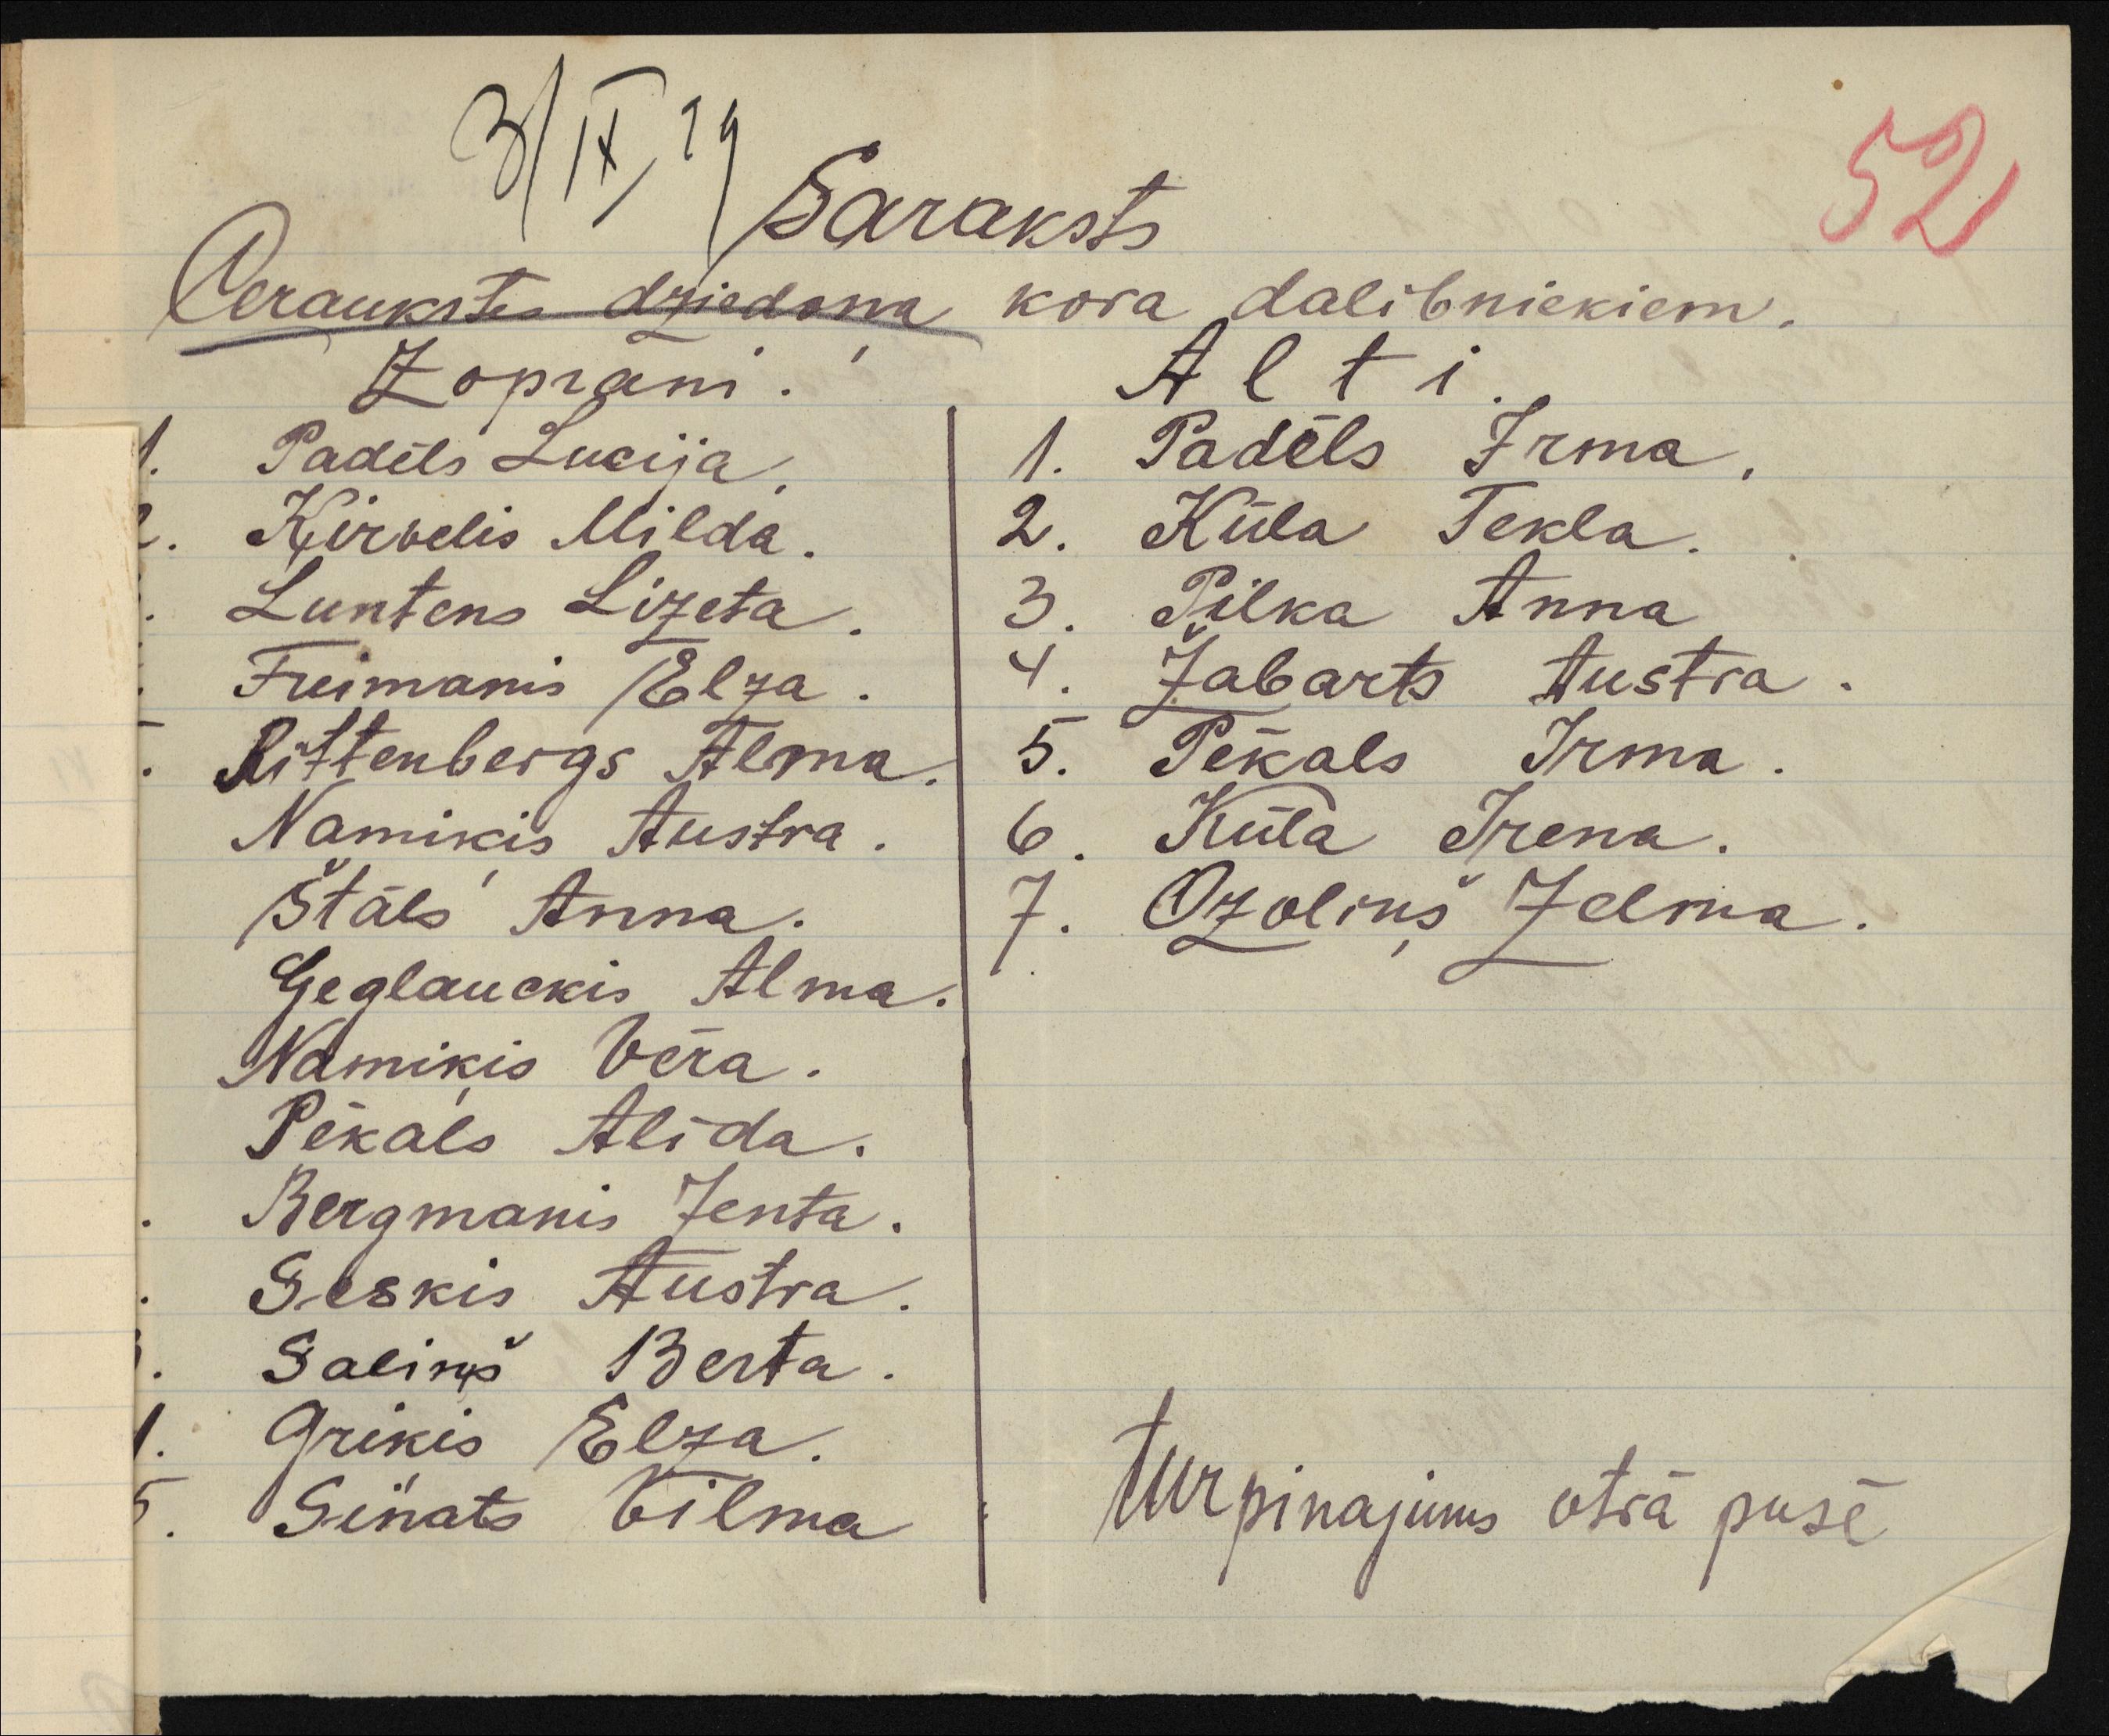 3/IX, 29
52
Saraksts
Ceraukstes dziedama kora dalibniekiem.
Zoprāni.
1. Padēls Lucija.
2. Ķirvelis Milda.
. Luntens Lizeta.
. Freimanis Elza.
. Rittenbergs Alma.
Namiķis Austra.
Štāls Anna.
Geglauckis Alma.
Namiķis Vēra.
Pēkals Alida.
. Bergmanis Zenta.
. Seskis Austra.
3. Saliņš Berta.
1. Grikis Elza.
5. Sināts Vilma
Alti.
1. Padēls Irma.
2. Kūla Tekla.
3. Pilka Anna
4. Žabarts Austra.
5. Pēkals Irma.
6. Kūla Irena.
7. Ozoliņš Zelma.
turpinajums otrā pusē